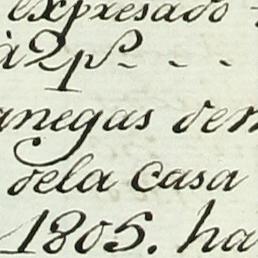 expresado
à 2 ps. - - -
anegas de
dela casa
1805. ha